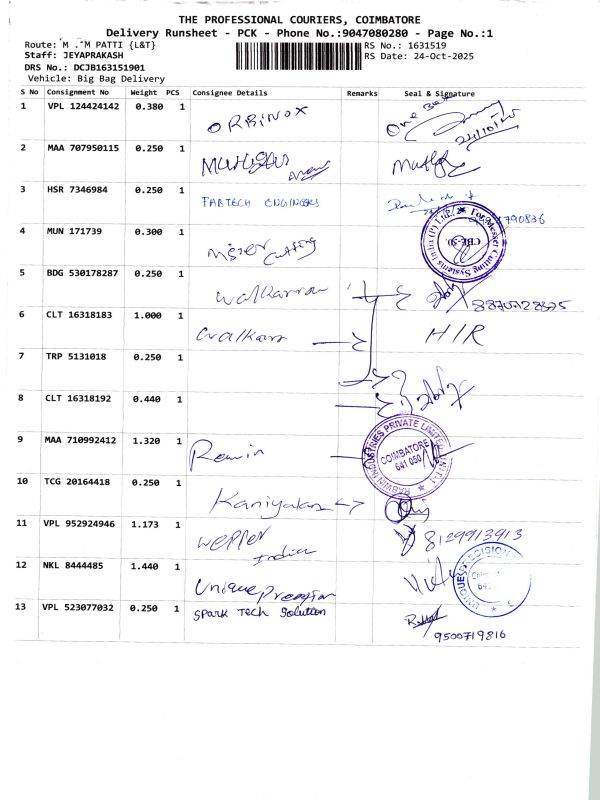 THE PROFESSIONAL COURIERS, COIMBATORE
Delivery Runsheet - PCK - Phone No.:9047080280 - Page No.:1
Route: M . M PATTI {L&T}
RS No.: 1631519
Staff: JEYAPRAKASH
RS Date: 24-Oct-2025
DRS No.: DCJB163151901
Vehicle: Big Bag Delivery
S No Consignment No Weight PCS Consignee Details Remarks Seal & Signature
1 VPL 124424142 0.380 1 ORBINOX
24/10/25
2 MAA 707950115 0.250 1
3 HSR 7346984 0.250 1 FABTECH ENGINEERS
790836
4 MUN 171739 0.300 1 Cutting
For Messer Cutting Systems India (P) Ltd.,
CBE-50.
5 BDG 530178287 0.250 1
6 CLT 16318183 1.000 1 H/R
7 TRP 5131018 0.250 1
8 CLT 16318192 0.440 1
9 MAA 710992412 1.320 1
INDUSTRIES PRIVATE LIMITED
COIMBATORE
641 050
10 TCG 20164418 0.250 1
11 VPL 952924946 1.173 1 India
8129913913
12 NKL 8444485 1.440 1 Unique
13 VPL 523077032 0.250 1 SPARK Tech Solution
9500719816